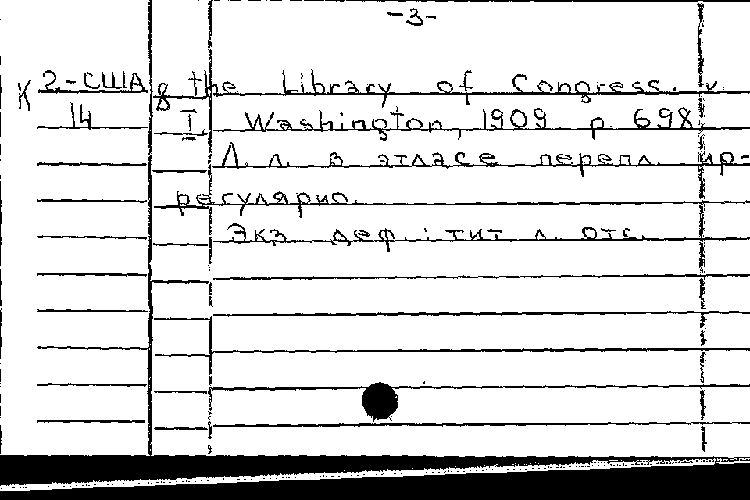 -3-
К 2-США
14
& the Library of Congress. v.
I. Washington, 1909 p. 698
Л. л. в атласе перепл. ир-
регулярно.
Экз. деф.: тит. л. отс.